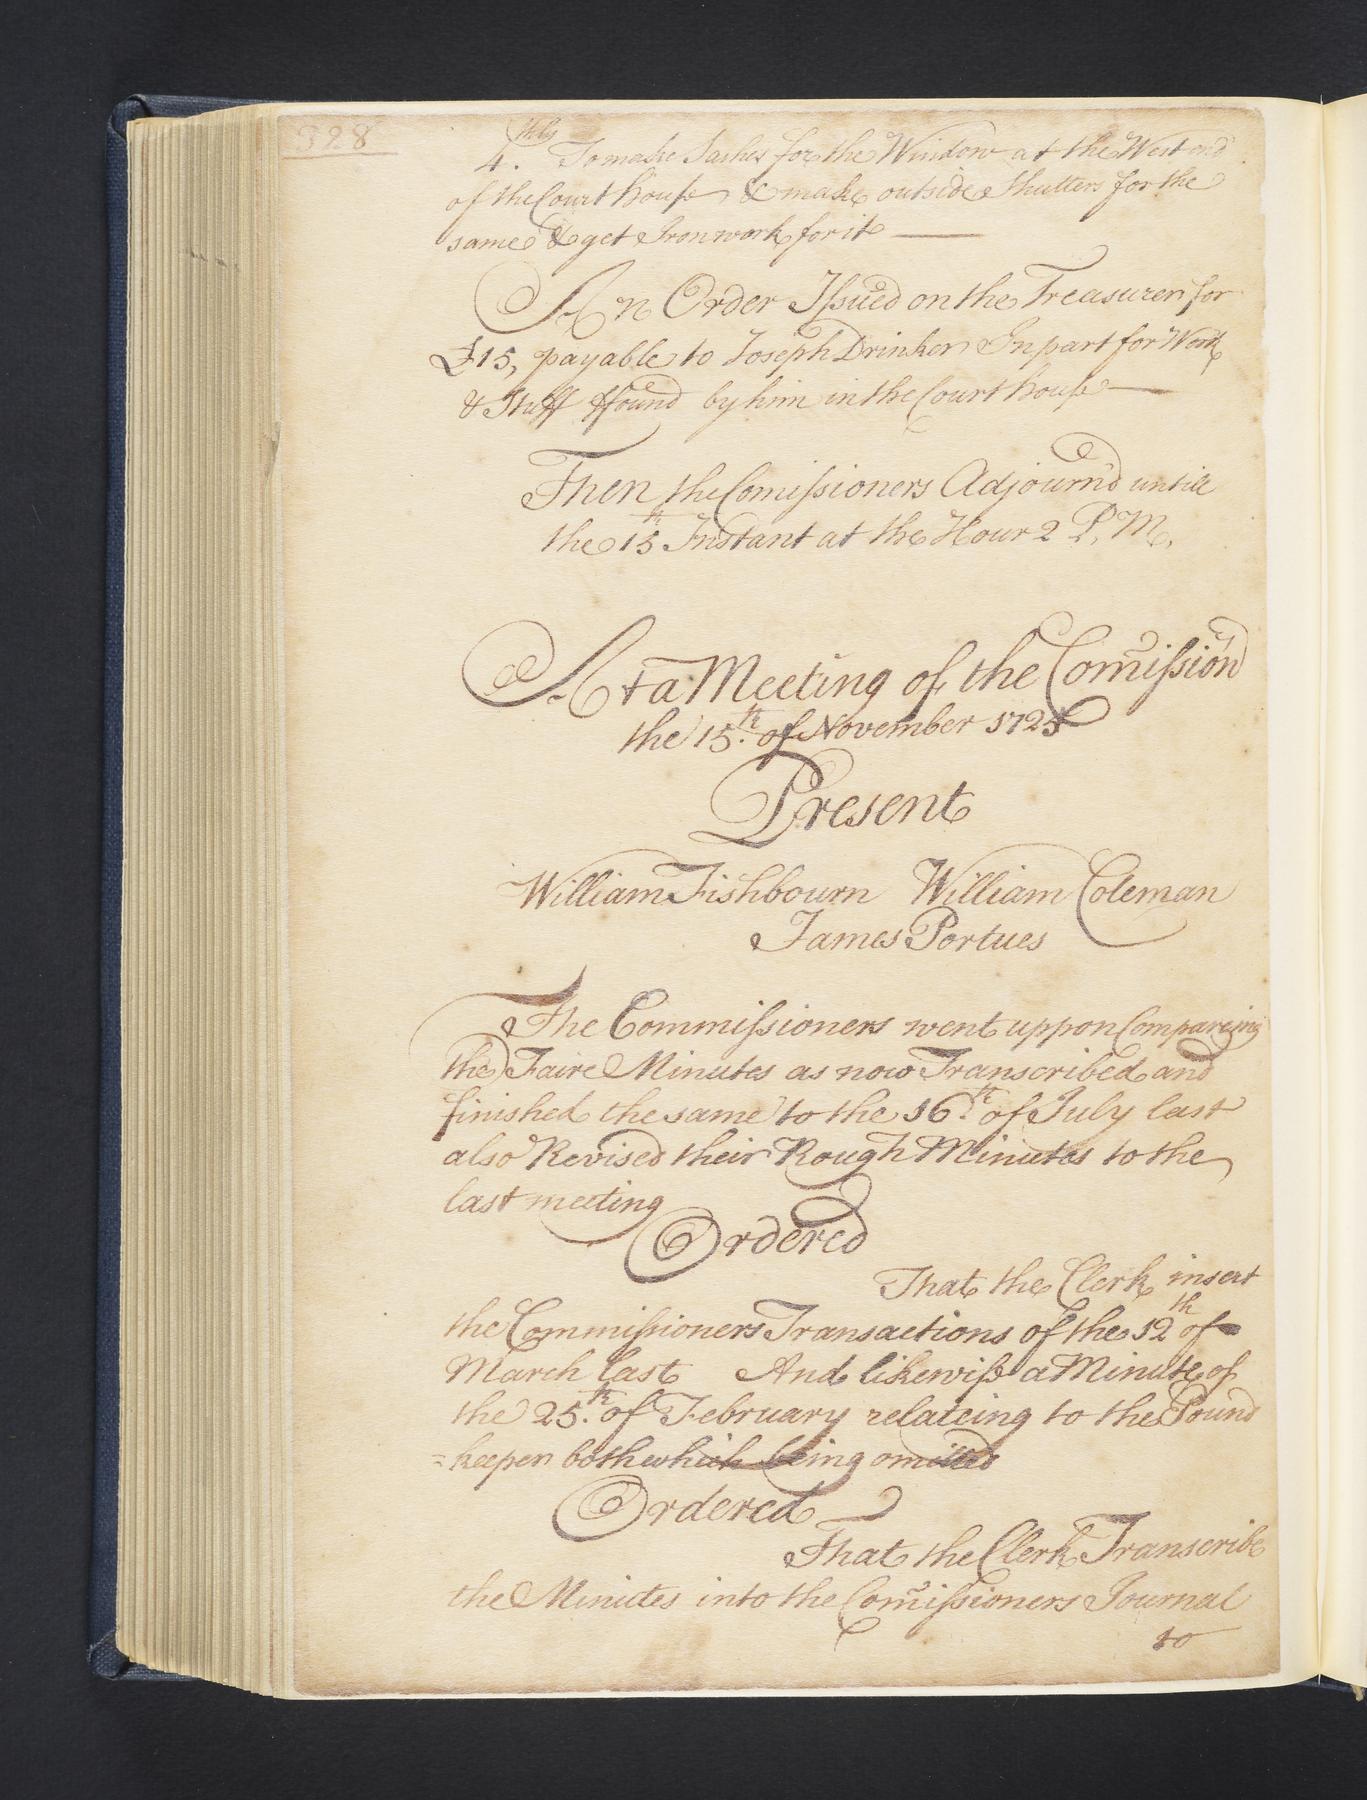 328
4.thly To make Sashes for the Window at the West end
of the Court house & make outside Shutters for the
same & get Ironwork for it
An Order Issued on the Treasurer for
£15, payable to Joseph Drinker In part for Work
& Stuff ffound by him in the Court house
Then the Comissioners Adjourn'd untill
the 15th Instant at the Hour 2 P. M.
At a Meeting of the Comission
the 15th. of November 1725
Present
William Fishbourn William Coleman
James Portues
The Commissioners went uppon Compareing
the Faire Minutes as now Transcribed and
finished the same to the 16th. of July last
also Revised their Rough Minutes to the
last meeting
Ordered
That the Clerk insert
the Commissioners Transactions of the 12th of
March last And likewise a Minute of
the 25th. of February relateing to the Pound
=keeper both which being omitted
Ordered
That the Clerk Transcribe
the Minutes into the Comissioners Journal
to